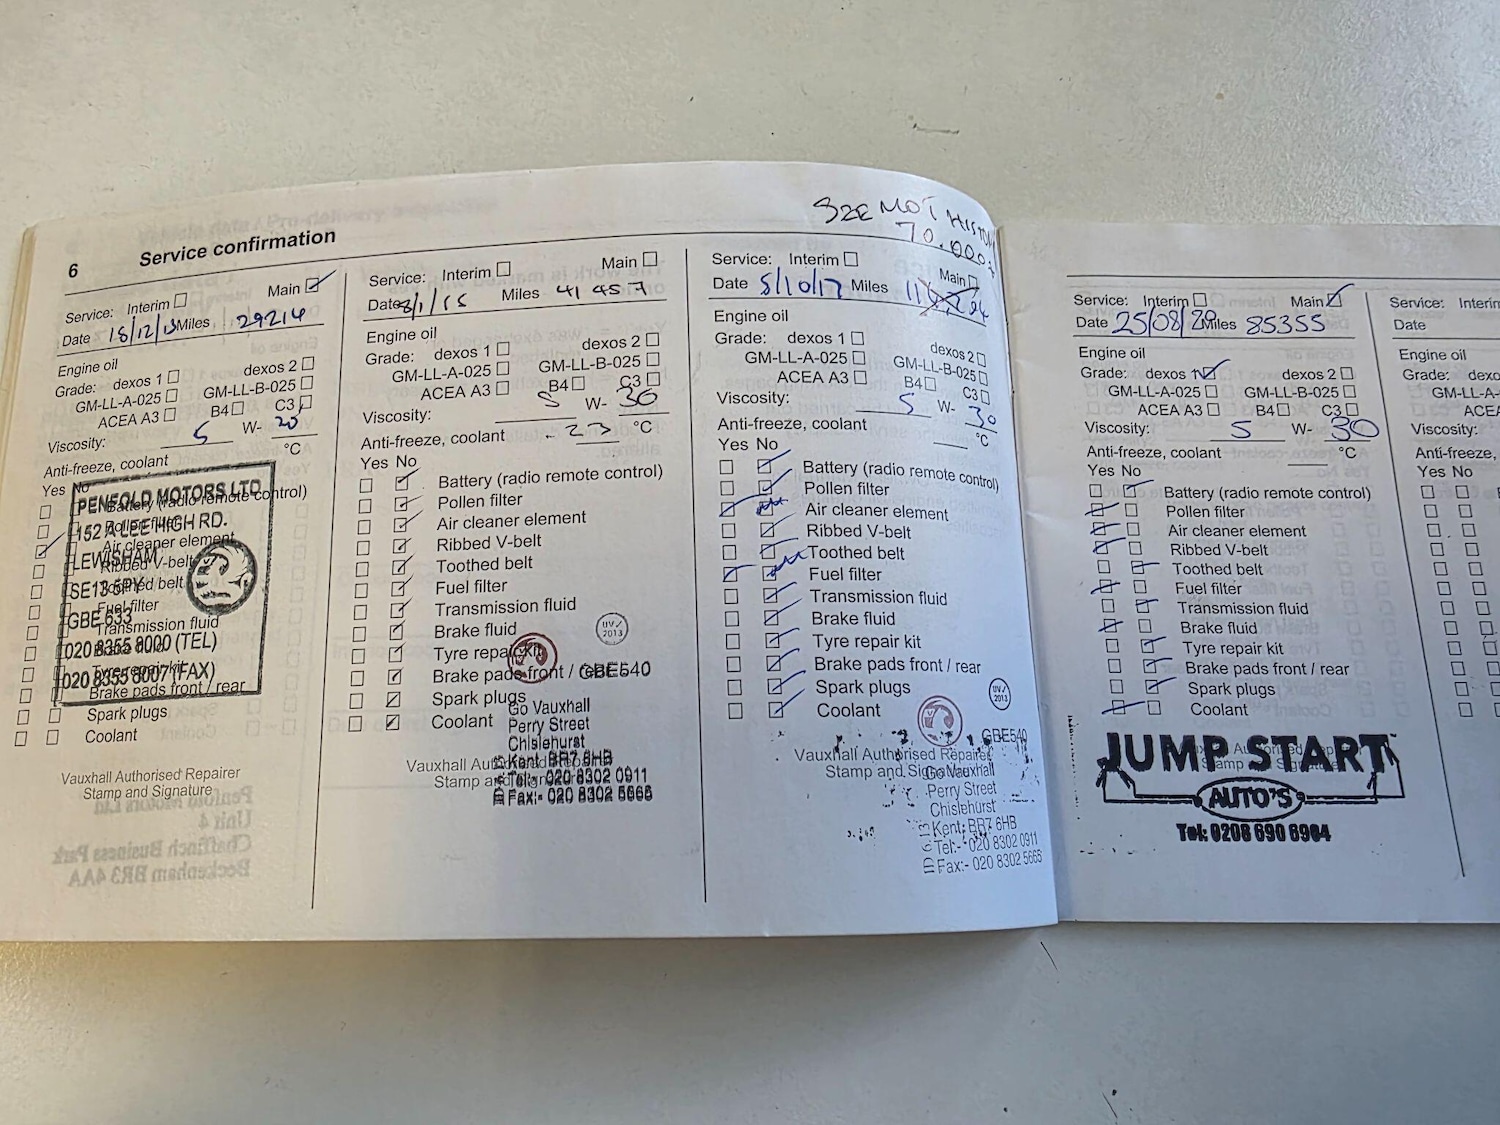 6 Service confirmation
Service: Interim
Main
Date 18/12/13 Miles 29214
Engine oil
Grade: dexos 1
dexos 2
GM-LL-A-025
GM-LL-B-025
ACEA A3
B4
C3
Viscosity: 5 W-
Anti-freeze, coolant
°C
Yes No
Battery (radio remote control)
Pollen filter
Air cleaner element
Ribbed V-belt
Toothed belt
Fuel filter
Transmission fluid
Brake fluid
Tyre repair kit
Brake pads front / rear
Spark plugs
Coolant
PENFOLD MOTORS LTD
152 A LEE HIGH RD.
LEWISHAM
SE13 5PY
GBE 633
020 8355 8000 (TEL)
020 8355 8007 (FAX)
Vauxhall Authorised Repairer
Stamp and Signature
Service: Interim
Main
Date 8/1/15 Miles 41457
Engine oil
Grade: dexos 1
dexos 2
GM-LL-A-025
GM-LL-B-025
ACEA A3
B4
C3
Viscosity: 5 W- 30
Anti-freeze, coolant - 23 °C
Yes No
Battery (radio remote control)
Pollen filter
Air cleaner element
Ribbed V-belt
Toothed belt
Fuel filter
Transmission fluid
Brake fluid
Tyre repair kit
Brake pads front /
Spark plugs
Coolant
UV✓
2013
GBE540
Go Vauxhall
Perry Street
Chislehurst
Kent BR7 6HB
Tel:- 020 8302 0911
Fax:- 020 8302 5665
Vauxhall Authorised
Stamp and
SEE MOT HISTORY
70.000+
Service: Interim
Main
Date 5/10/17 Miles
Engine oil
Grade: dexos 1
dexos 2
GM-LL-A-025
GM-LL-B-025
ACEA A3
B4
C3
Viscosity: 5 W- 30
Anti-freeze, coolant
°C
Yes No
Battery (radio remote control)
Pollen filter
Air cleaner element
Ribbed V-belt
Toothed belt
Fuel filter
Transmission fluid
Brake fluid
Tyre repair kit
Brake pads front / rear
Spark plugs
Coolant
UV✓
2013
GBE540
Vauxhall Authorised Repairer
Stamp and Signature
Go Vauxhall
Perry Street
Chislehurst
Kent: BR7 6HB
Tel:- 020 8302 0911
Fax:- 020 8302 5665
Service: Interim
Main
Date 25/08/20 Miles 85355
Engine oil
Grade: dexos 1
dexos 2
GM-LL-A-025
GM-LL-B-025
ACEA A3
B4
C3
Viscosity: 5 W- 30
Anti-freeze, coolant
°C
Yes No
Battery (radio remote control)
Pollen filter
Air cleaner element
Ribbed V-belt
Toothed belt
Fuel filter
Transmission fluid
Brake fluid
Tyre repair kit
Brake pads front / rear
Spark plugs
Coolant
JUMP START
AUTO'S
Tel: 0208 690 6904
Service: Interim
Date
Engine oil
Grade: dexo
GM-LL-A
ACEA
Viscosity:
Anti-freeze,
Yes No